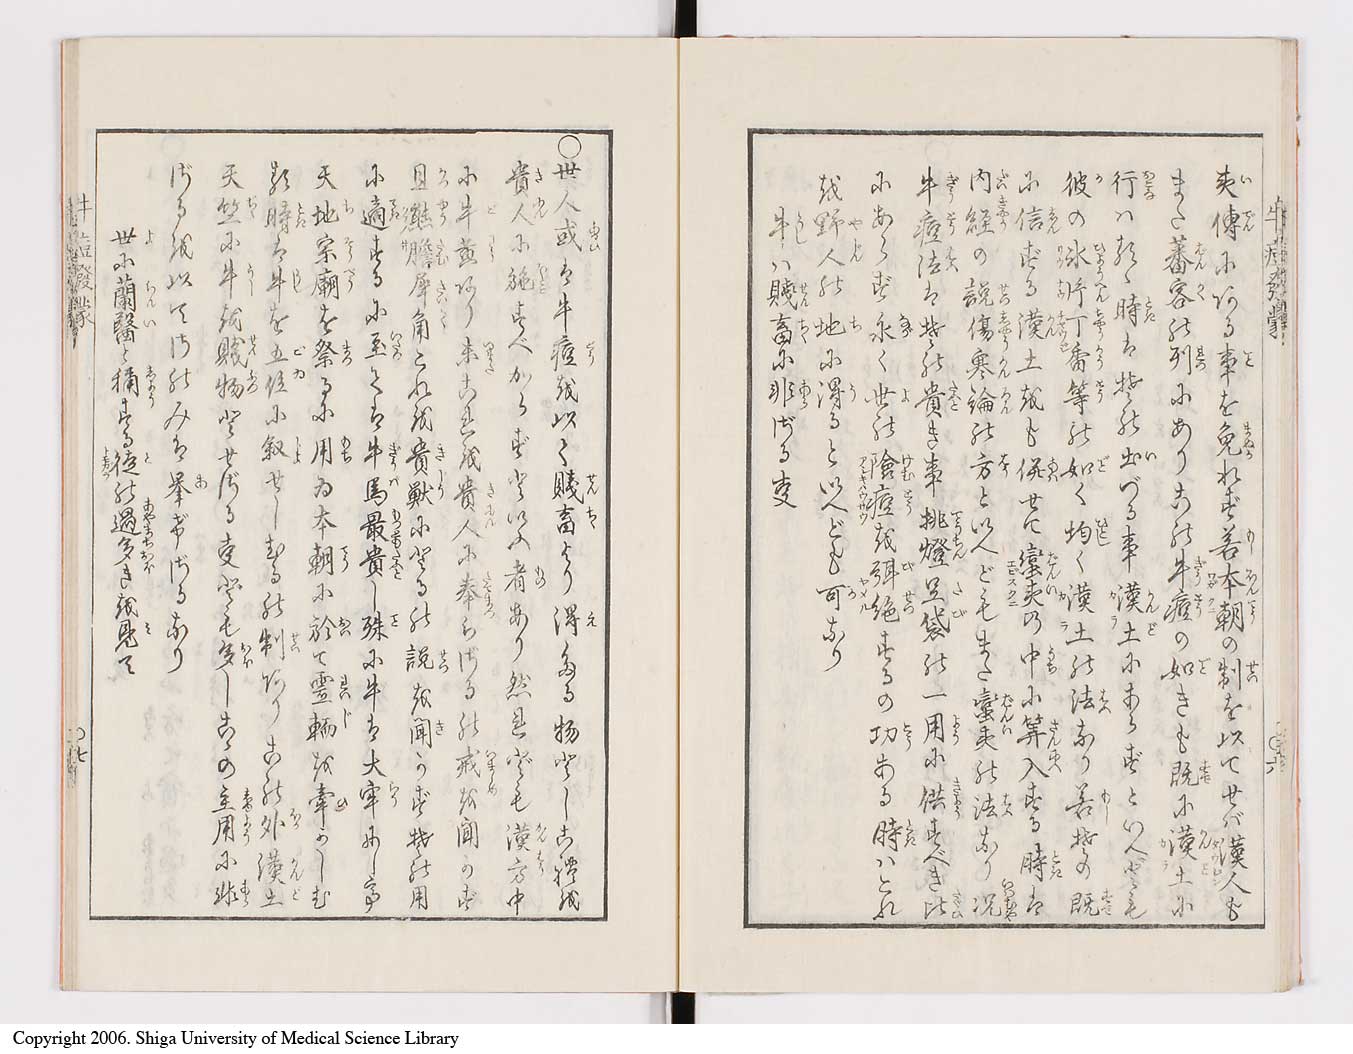 夷傳にある事を免れず若本朝の制を以てせバ漢人も
また蕃客の列にありこの牛痘の如きも既に漢土に
行ハるゝ時はその出づる事漢土にあらずといへども
彼の氷片丁香等の如く均く漢土の法なり若その既
に信ずる漢土をも併せて蠻夷の中に算入する時は
内經の説傷寒論の方といへどもまた蠻夷の法なり况
牛痘法はその貴き事挑燈足袋の一用に供すべき比
にあらず永く世の陰痘を弭絶するの功ある時ハこれ
を野人の地に得るといへども可なり
牛ハ賤畜に非ざる支
○世人或は牛痘を以て賤畜より得たる物としこれを
貴人に施すべからずといふ者あり然れども漢方中
に牛黄あり未これを貴人に奉らざるの戒を聞かず
且熊膽犀角これを貴獣にとるの説を聞かずその用
に適するに至ては牛馬最貴し殊に牛は大牢にし亭
天地宗廟を祭るに用ゐ本朝に於て霊輀を牽かしむ
る時は牛を五位に叙せしむるの制ありこの外漢土
天竺に牛を賤物とせざる支尤も多しこゝの主用に非
ざるを以てそのみは挙げざるなり
世に蘭醫と稱する徒の過多きを見て
牛痘發蒙
○六
牛痘發蒙
○七
Copyright 2006. Shiga University of Medical Science Library